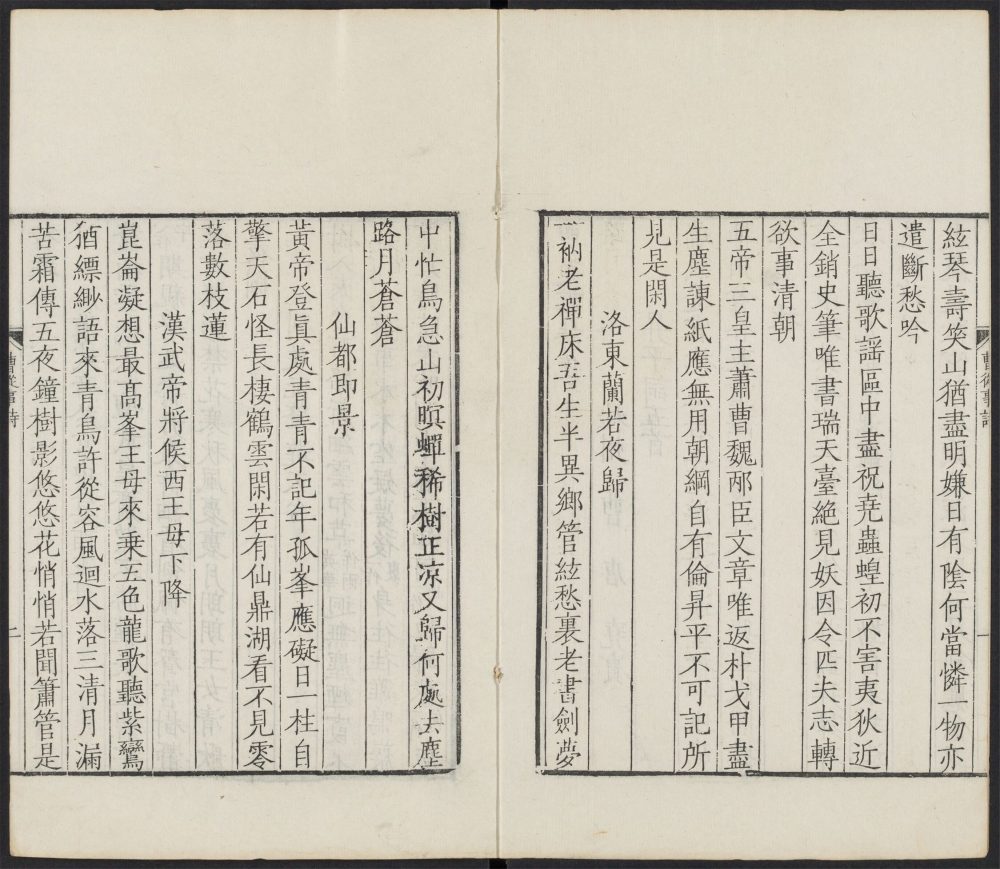 絃琴壽笑山猶盡明嫌日有陰何當憐一物亦
遣斷愁吟
日日聽歌謡區中盡祝堯蟲蝗初不害夷狄近
全銷史筆唯書瑞天臺絶見妖因令匹夫志轉
欲事清朝
五帝三皇主蕭曹魏邴臣文章唯返朴戈甲盡
生塵諫紙應無用朝綱自有倫昇平不可記所
見是閑人
洛東蘭若夜歸
一衲老禪床吾生半異鄉管絃愁裏老書劍夢
中忙鳥急山初暝蟬稀樹正凉又歸何處去塵
路月蒼蒼
仙都即景
黃帝登眞處青青不記年孤峯應礙日一柱自
擎天石怪長棲鶴雲閑若有仙鼎湖看不見零
落數枝蓮
漢武帝將候西王母下降
崑崙凝想最髙峯王母來乘五色龍歌聽紫鸞
猶縹緲語來青鳥許從容風迴水落三清月漏
苦霜傳五夜鐘樹影悠悠花悄悄若聞簫管是
曹從事詩
一
曹從事詩